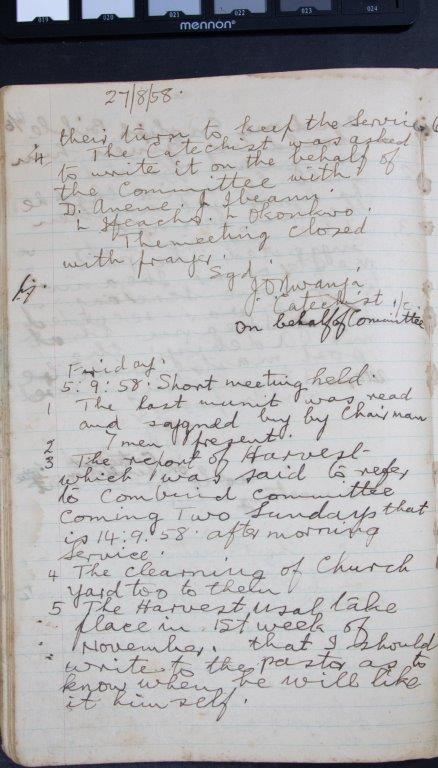 019 020 021 022 023 024
mennon
27/8/58.
their turn to keep the service
4 The Catechist was asked
to write it on the behalf of
the Committee with
D. Anene. L Ibeanu.
L Ifeachi. L Okonkwo.
The meeting closed
with prayer.
Sgd.
J. O. Nwanja
Catechist i/c
on behalf of Committee
Friday.
5:9:58. Short meeting held.
1 The last munit was read
and saigned by by Chairman
2 7 men present.
3 The report of Harvest
which was said to refer
to Combind Committee
coming Two Sundays that
is 14:9:58 after morning
Service.
4 The Clearning of Church
yard too to them
5 The Harvest usal take
place in 1st week of
November. that I should
write to the pastor as to
know when he will like
it himself.